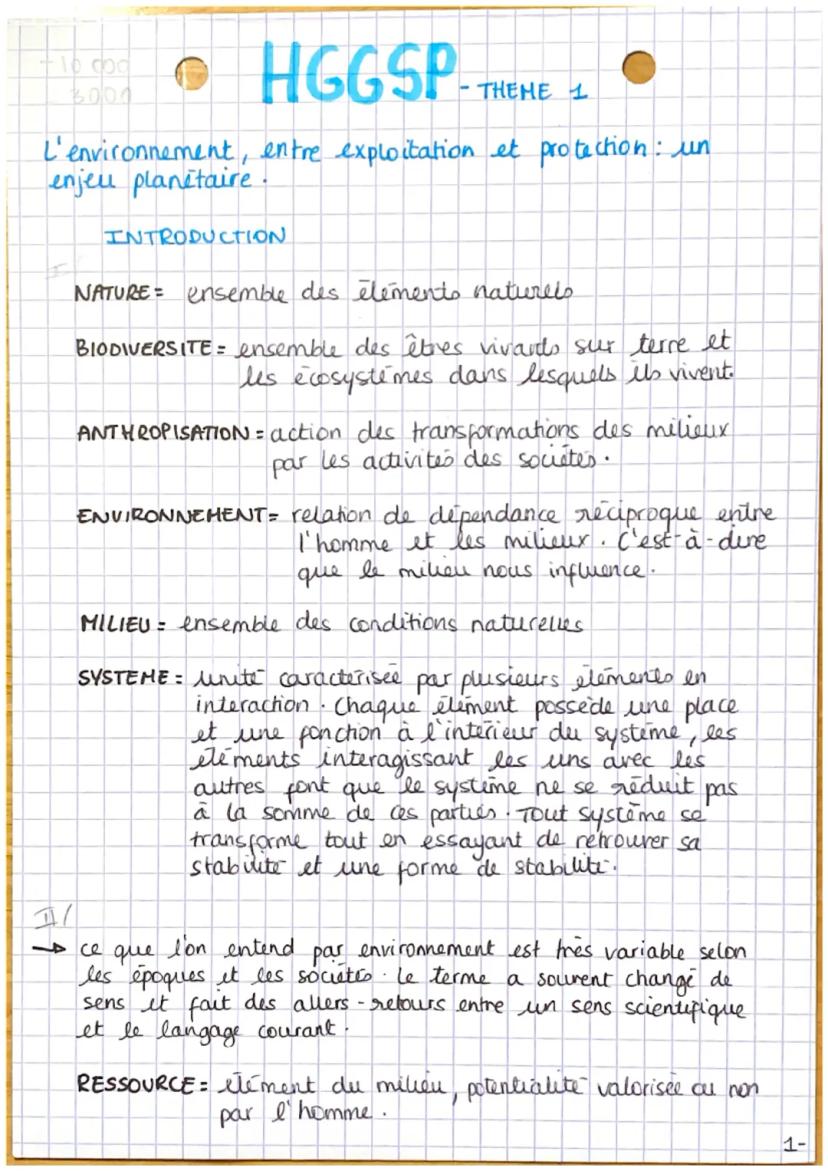 -10 000
3000
HGGSP - THEME 1
L'environnement, entre exploitation et protection : un
enjeu planétaire.
INTRODUCTION
I/
NATURE = ensemble des éléments naturels
BIODIVERSITE = ensemble des êtres vivants sur terre et
les écosystèmes dans lesquels ils vivent.
ANTHROPISATION = action des transformations des milieux
par les activités des sociétés.
ENVIRONNEMENT = relation de dépendance réciproque entre
l'homme et les milieux. C'est-à-dire
que le milieu nous influence.
MILIEU = ensemble des conditions naturelles
SYSTEME = unité caractérisée par plusieurs éléments en
interaction. Chaque élément possède une place
et une fonction à l'intérieur du système, les
éléments interagissant les uns avec les
autres font que le système ne se réduit pas
à la somme de ces parties. Tout système se
transforme tout en essayant de retrouver sa
stabilité et une forme de stabilité.
II/
→ ce que l'on entend par environnement est très variable selon
les époques et les sociétés. Le terme a souvent changé de
sens et fait des allers-retours entre un sens scientifique
et le langage courant.
RESSOURCE = élément du milieu, potentialité valorisée ou non
par l'homme.
1-